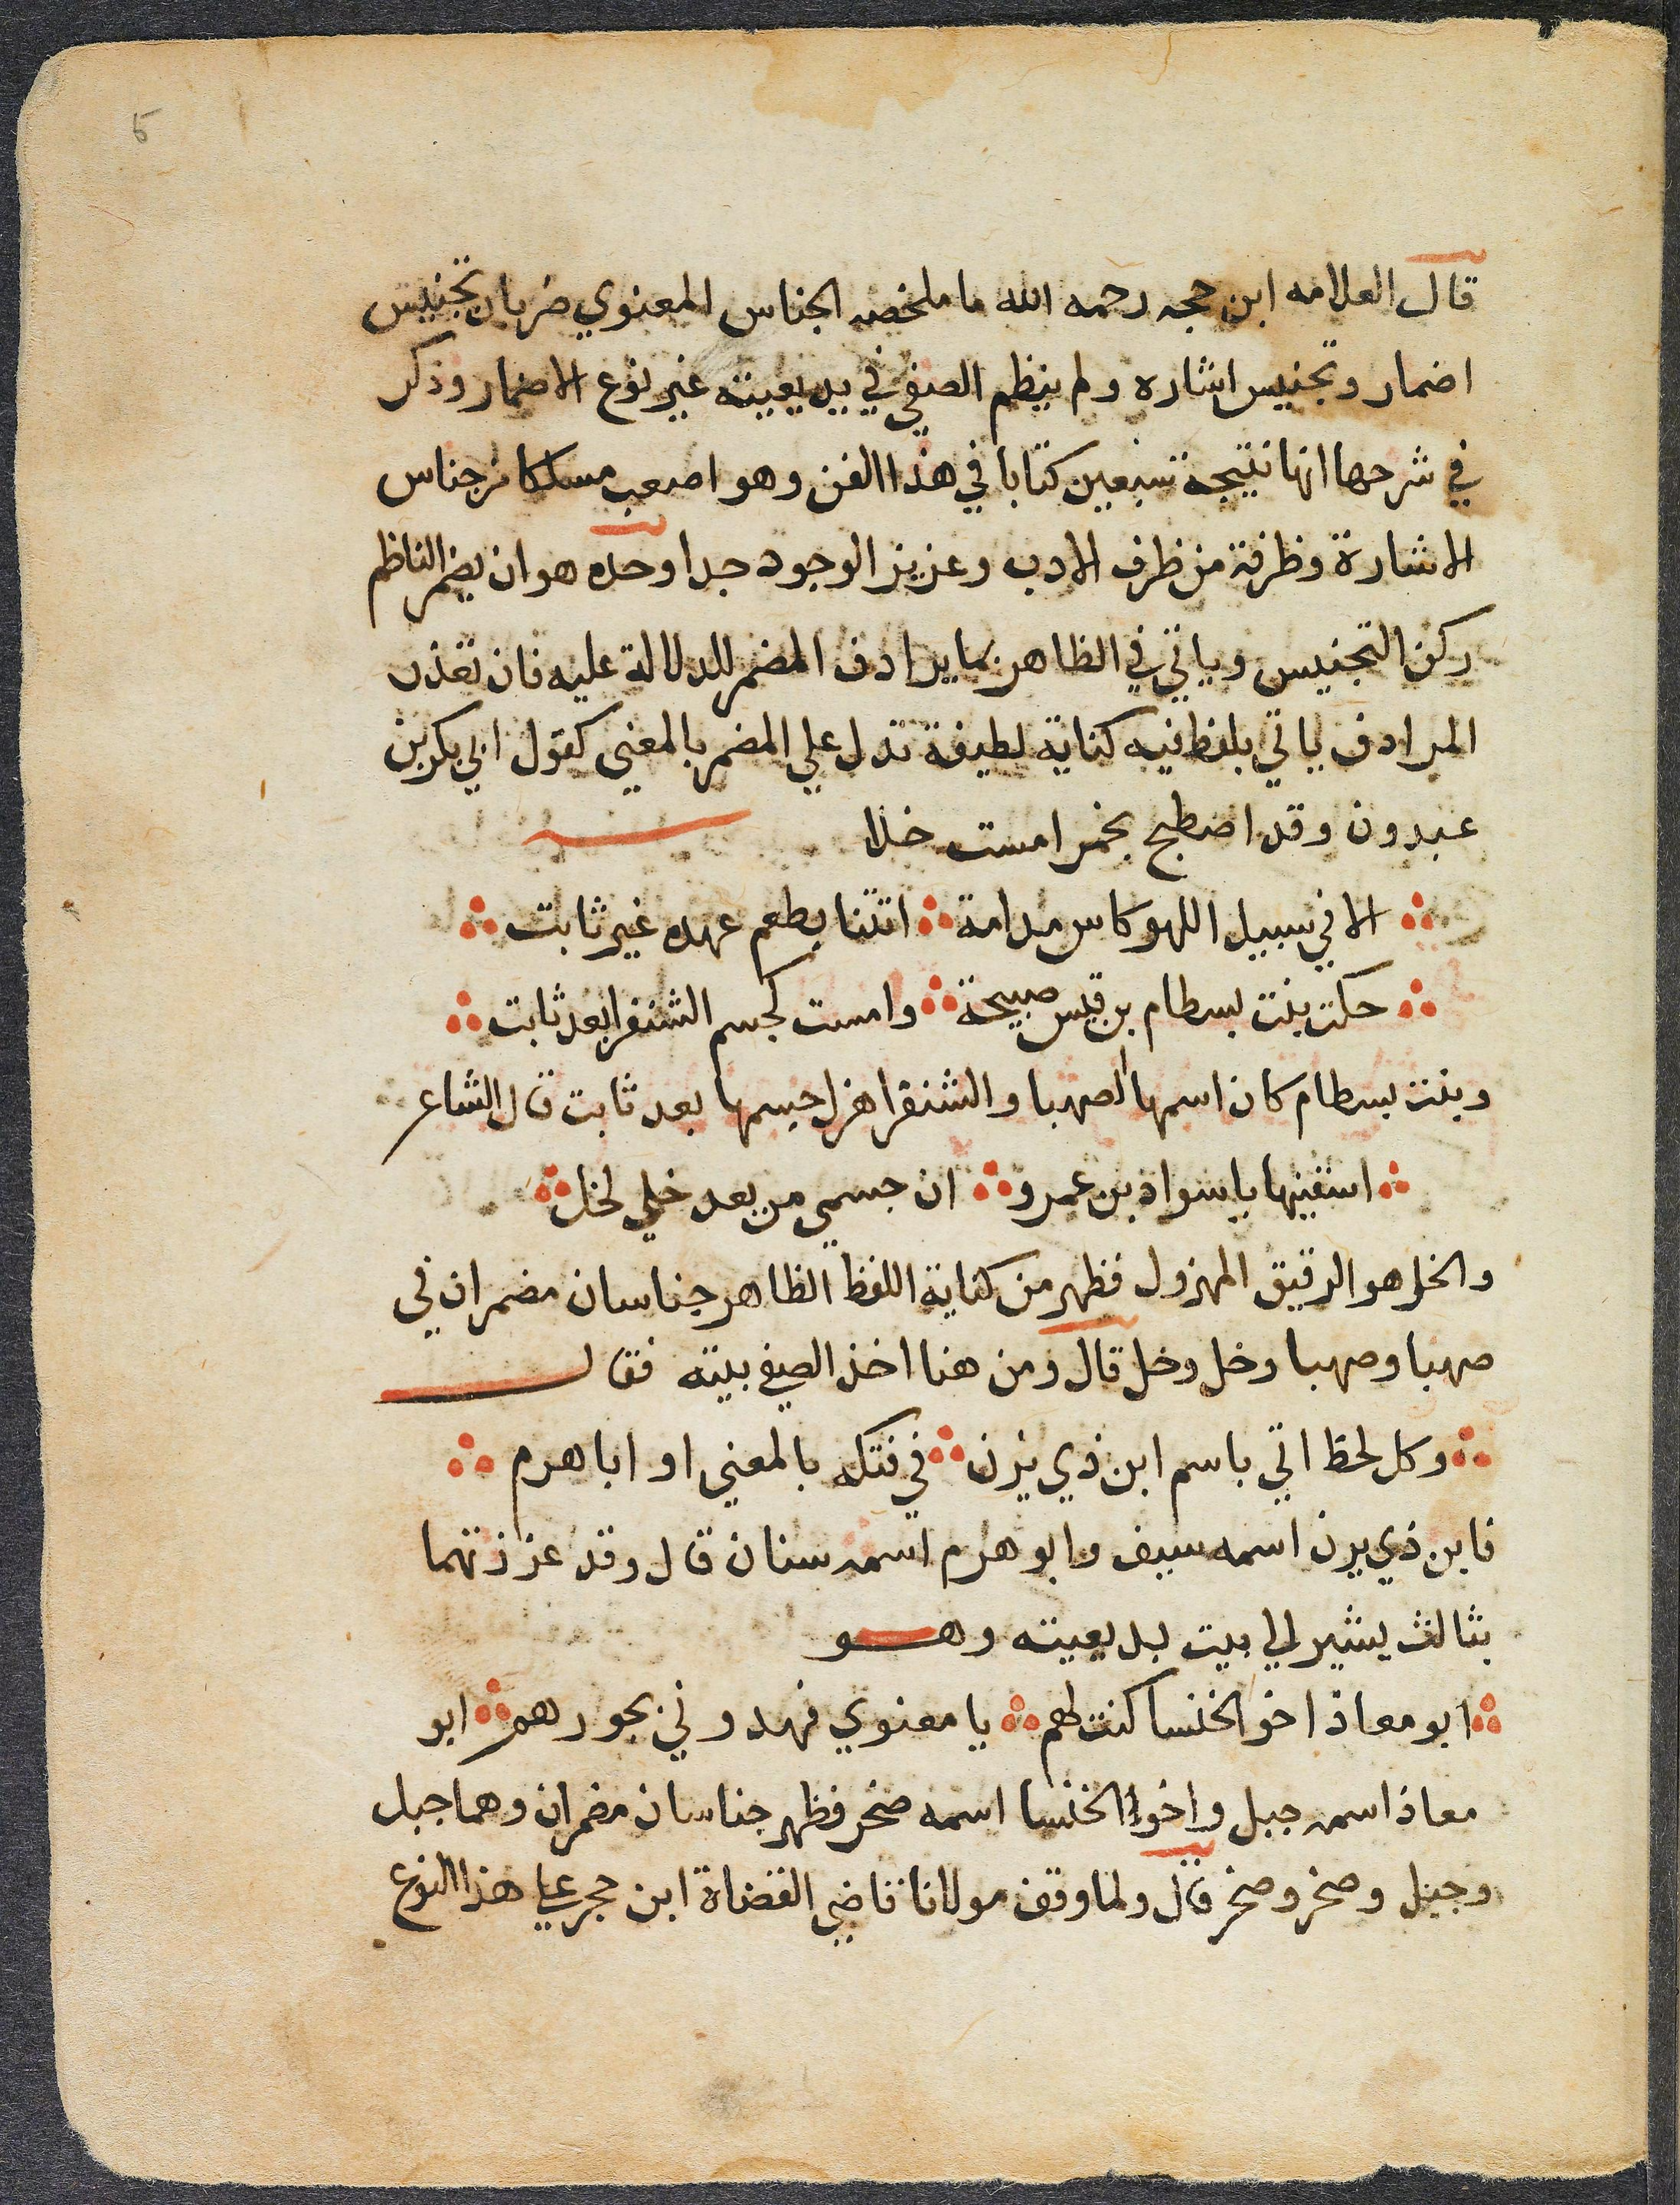 5
قال العلامه ابن حجه رحمه الله ما ملخصه الجناس المعنوي ضربان تجنيس
اضمار وتجنيس اشاره ولم ينظم الصفي في بديعيته غير نوع الاضمار وذكر
في شرحها انها نتيجة سبعين كتابا في هذا الفن وهو اصعب مسلكا من جناس
الاشارة وظرفة من ظرف الادب وعزيز الوجود جدا وحده هو ان يضمر الناظم
ركن التجنيس وياتي في الظاهر بما يرادف المضمر للدلالة عليه فان تعذر
المرادف ياتي بلفظ فيه كناية لطيفة تدل علي المضمر بالمعني كقول ابي بكر بن
عبدون وقد اصطبح بخمر امست خلا
الا في سبيل اللهو كاس مدامة اتتنا بطعم عهده غير ثابت
حكت بنت بسطام بن قيس صبيحة وامست كجسم الشنفرا بعد ثابت
وبنت بسطام كان اسمها الصهبا والشنفرا هزل جسمها بعد ثابت قال الشاعر
اسقنيها يا سواد بن عمرو ان جسمي من بعد خلي لخل
والخل هو الرقيق المهزول فظهر من كناية اللفظ الظاهر جناسان مضمران في
صهبا وصهبا وخل وخل قال ومن هنا اخذ الصفي بيته فقال
وكل لحظ اتي باسم ابن ذي يزن في فتكه بالمعني او ابا هرم
فابن ذي يزن اسمه سيف وابو هرم اسمه سنان قال وقد عززتهما
بثالث يشير الي بيت بديعيته وهو
ابو معاذ اخو الخنسا كنت لهم يا معنوي فهدوني بجورهم ابو
معاذ اسمه جبل واخو الخنسا اسمه صخر فظهر جناسان مضمران وهما جبل
وجبل وصخر وصخر قال ولما وقف مولانا قاضي القضاة ابن حجر علي هذا النوع